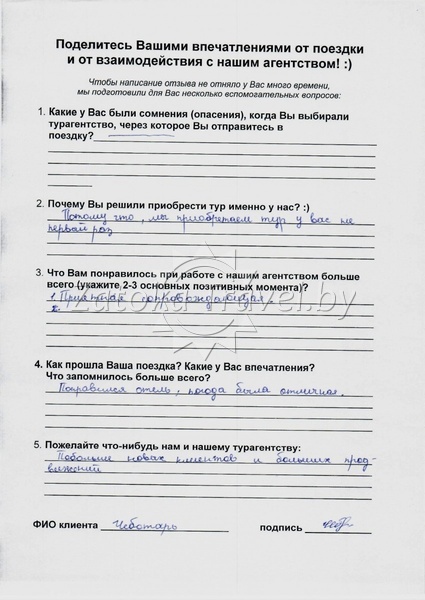 Поделитесь Вашими впечатлениями от поездки
и от взаимодействия с нашим агентством! :)
Чтобы написание отзыва не отняло у Вас много времени,
мы подготовили для Вас несколько вспомогательных вопросов:
1. Какие у Вас были сомнения (опасения), когда Вы выбирали
турагентство, через которое Вы отправитесь в
поездку?
2. Почему Вы решили приобрести тур именно у нас? :)
Потому что, мы приобретаем тур у вас не
первый раз
3. Что Вам понравилось при работе с нашим агентством больше
всего (укажите 2-3 основных позитивных момента)?
1. Приятная сопровождающая
2.
Zatoka-Travel.by
4. Как прошла Ваша поездка? Какие у Вас впечатления?
Что запомнилось больше всего?
Понравился отель, погода была отличная.
5. Пожелайте что-нибудь нам и нашему турагентству:
Побольше новых клиентов и больших прод-
вижений
ФИО клиента Чеботарь подпись